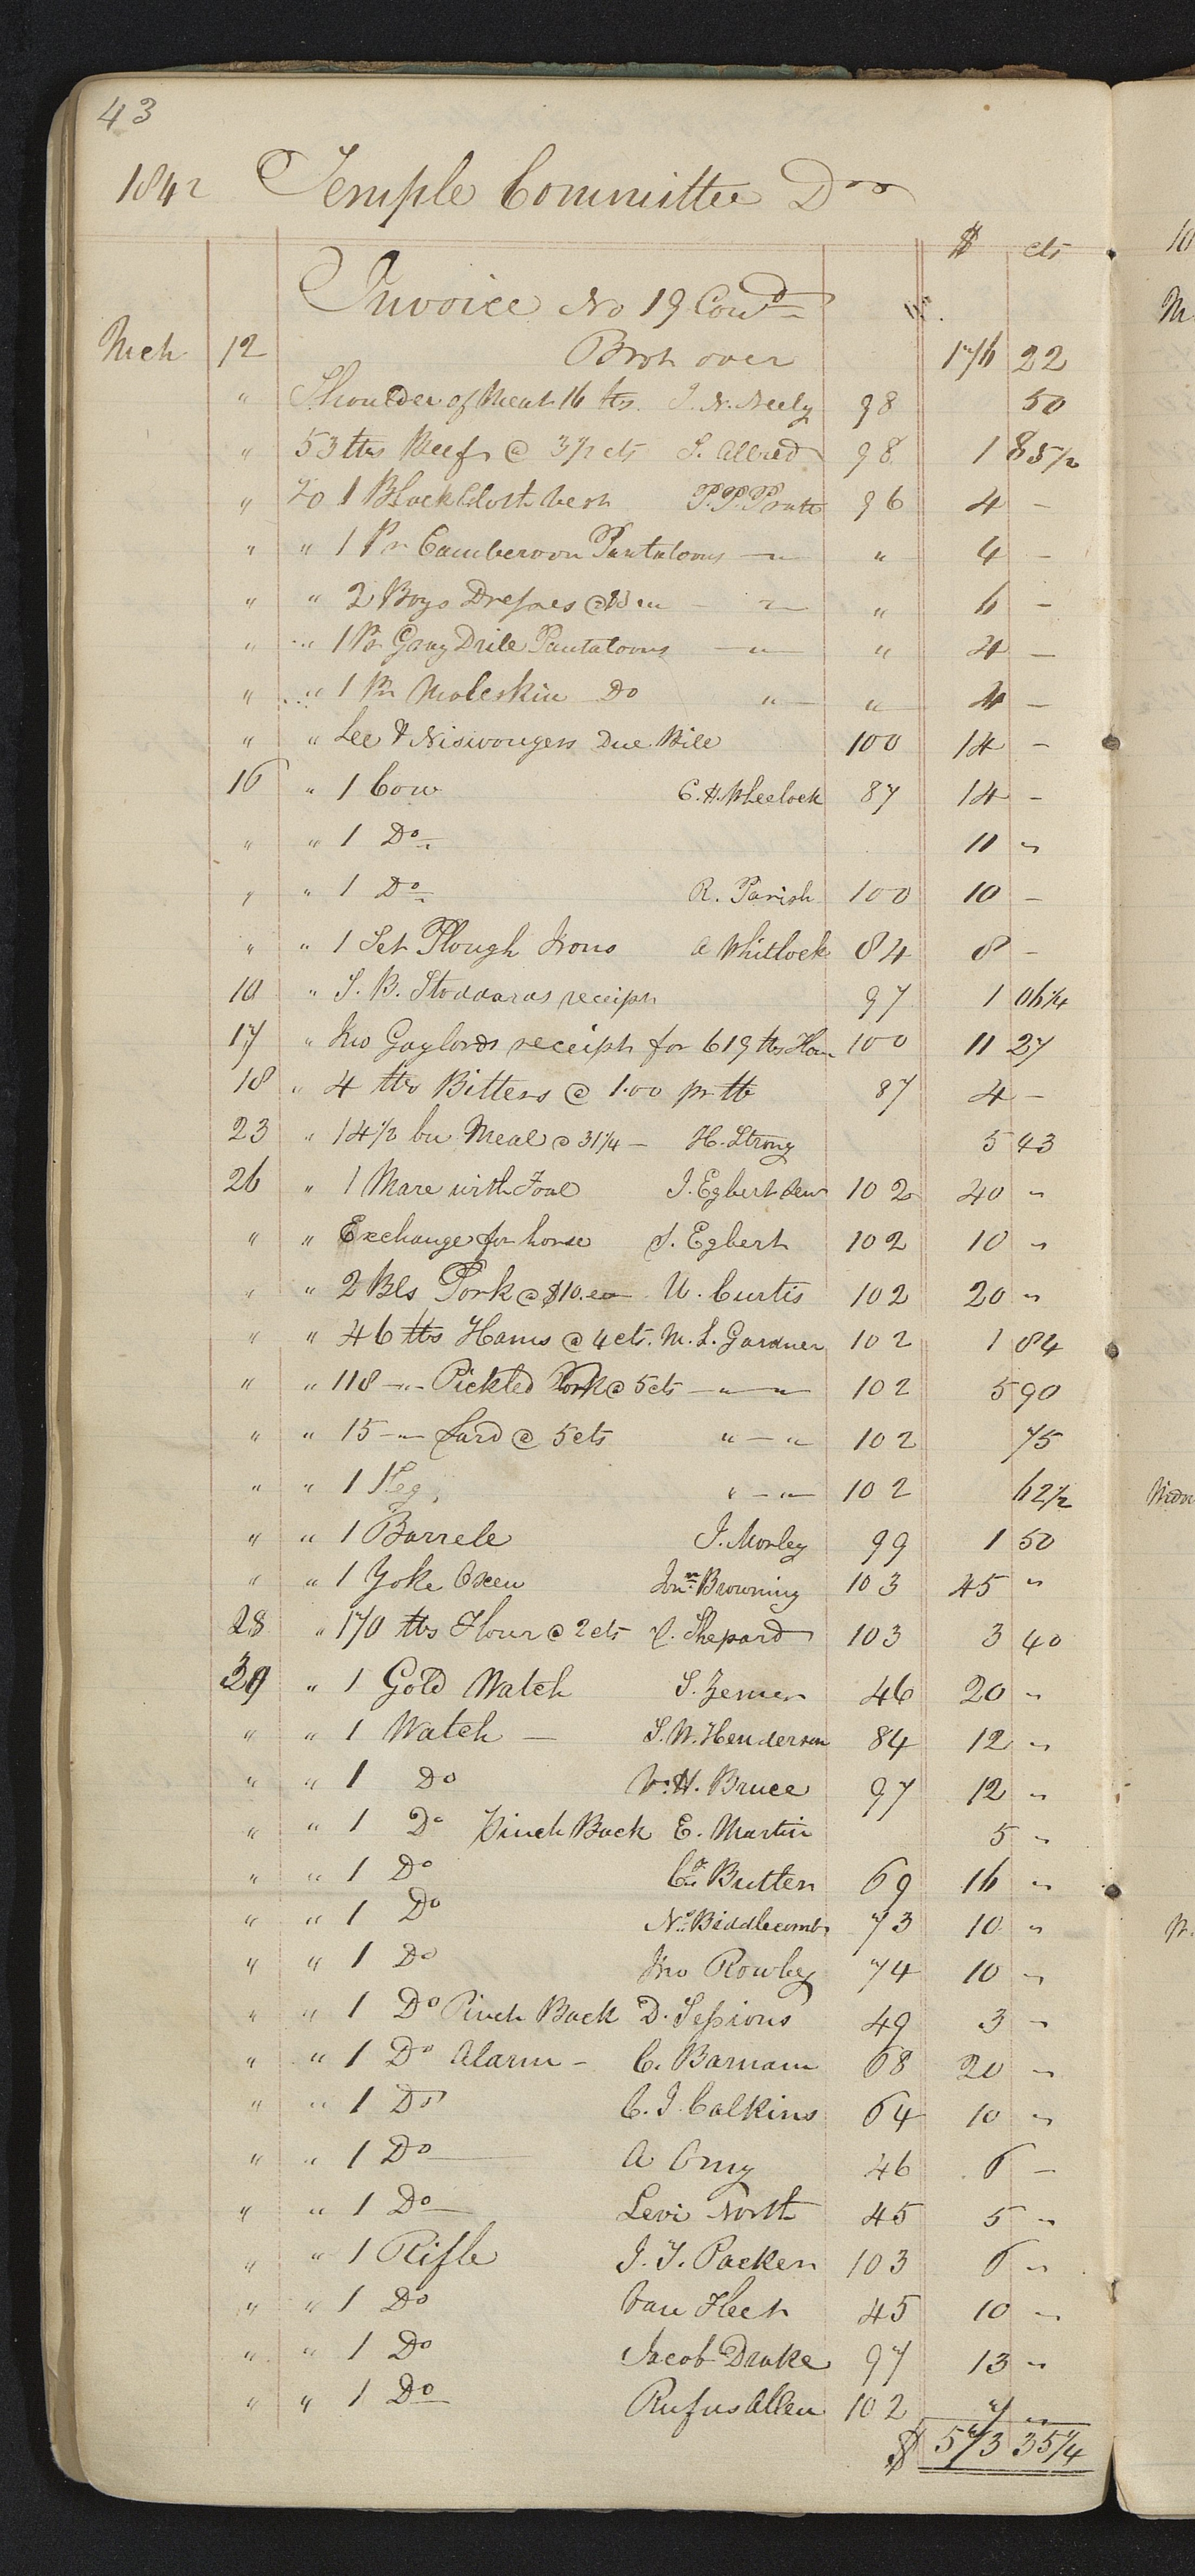 43
1842 Temple Committee Dr
$ cts
Invoice No 19 Cond
Mch 12 Brot over 176 22
" Shoulder of Meat 16 lbs. J. N. Neely 98 50
" 53 lbs Beef @ 3½ cts S. Allred 98 1 85½
" To 1 Black Cloth Vest P. P. Pratt 96 4 -
" " 1 Pr Camberoon Pantaloons —"— " 4 -
" " 2 Boys Dresses @ $3 ea - —"— " 6 -
" " 1 Pr Gray Drile Pantaloons —"— " 4 -
" " 1 Pr Moleskin Do "— " 4 -
" " Lee & Niswongers Due Bill 100 14 -
16 " 1 Cow C. H. Wheelock 87 14 -
" " 1 Do 11 "
" " 1 Do R. Parish 100 10 -
" " 1 Set Plough Irons A Whitlock 84 8 -
18 " S. B. Stoddards receipt 97 1 06¼
17 " Jno Gaylords receipt for 619 lbs Ham 100 11 27
18 " 4 lbs Bitters @ 1.00 pr lb 87 4 -
23 " 14½ bu Meal @ 31¼ - H. Strong 5 43
26 " 1 Mare with Foal J. Egbert Senr 102 40 "
" " Exchange for horse J. Egbert 102 10 "
" " 2 Bls Pork @ $10. ea U. Curtis 102 20 "
" " 46 lbs Hams @ 4 cts. M. L. Gardner 102 1 84
" " 118 -"- Pickled Pork @ 5 cts —"—"— 102 5 90
" " 15 -"- Lard @ 5 cts "—" 102 75
" " 1 Keg "—"— 102 62½
" " 1 Barrele J. Morley 99 1 50
" " 1 Yoke Oxen Jonn. Browning 103 45 "
28 " 170 lbs Flour @ 2 cts C. Shepard 103 3 40
29 " 1 Gold Watch S. Zemer 46 20 "
" " 1 Watch — S. W. Henderson 84 12 "
" " 1 Do W. H. Bruce 97 12 "
" " 1 Do Pinch Back E. Martin 5 "
" " 1 Do Butten 69 16 "
" " 1 Do N. Biddlecomb 73 10 "
" " 1 Do Jno Rowley 74 10 "
" " 1 Do Pinch Back D. Sessions 49 3 "
" " 1 Do Alarm - C. Barnam 68 20 "
" " 1 Do C. J. Calkins 64 10 "
" " 1 Do A Amy 46 6 -
" " 1 Do Levi North 45 5 "
" " 1 Rifle J. T. Packer 103 6 "
" " 1 Do Van Fleet 45 10 "
" " 1 Do Jacob Drake 97 13 "
" " 1 Do Rufus Allen 102 7 "
$ 573 35¼